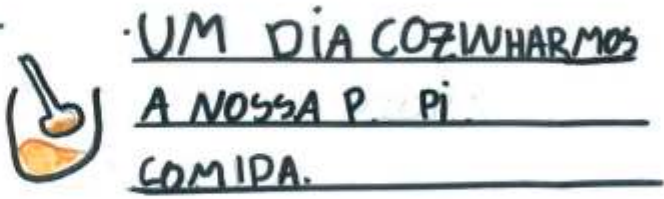 ·UM DIA COZINHARMOS
A NOSSA P. Pi.
COMIDA.